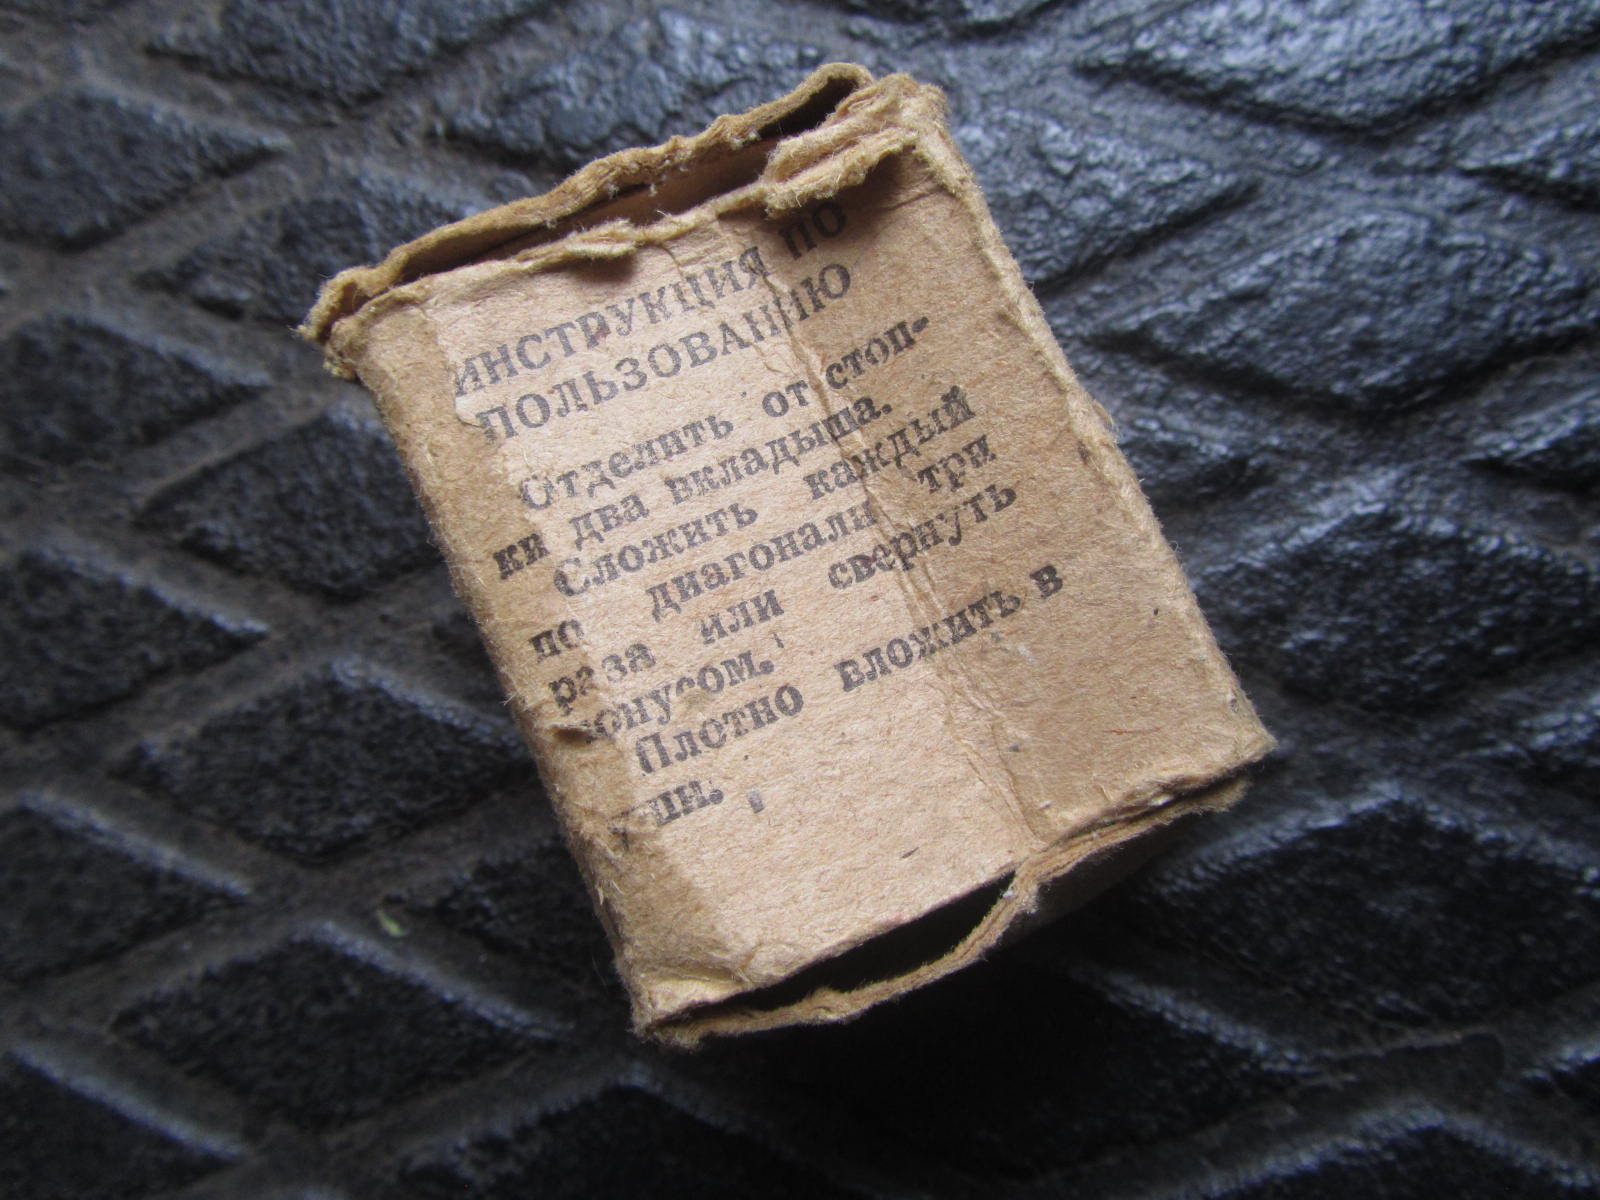 ИНСТРУКЦИЯ ПО
ПОЛЬЗОВАНИЮ
Отделить от стоп-
ки два вкладыша.
Сложить каждый
по диагонали три
раза или свернуть
конусом.
Плотно вложить в
уши.